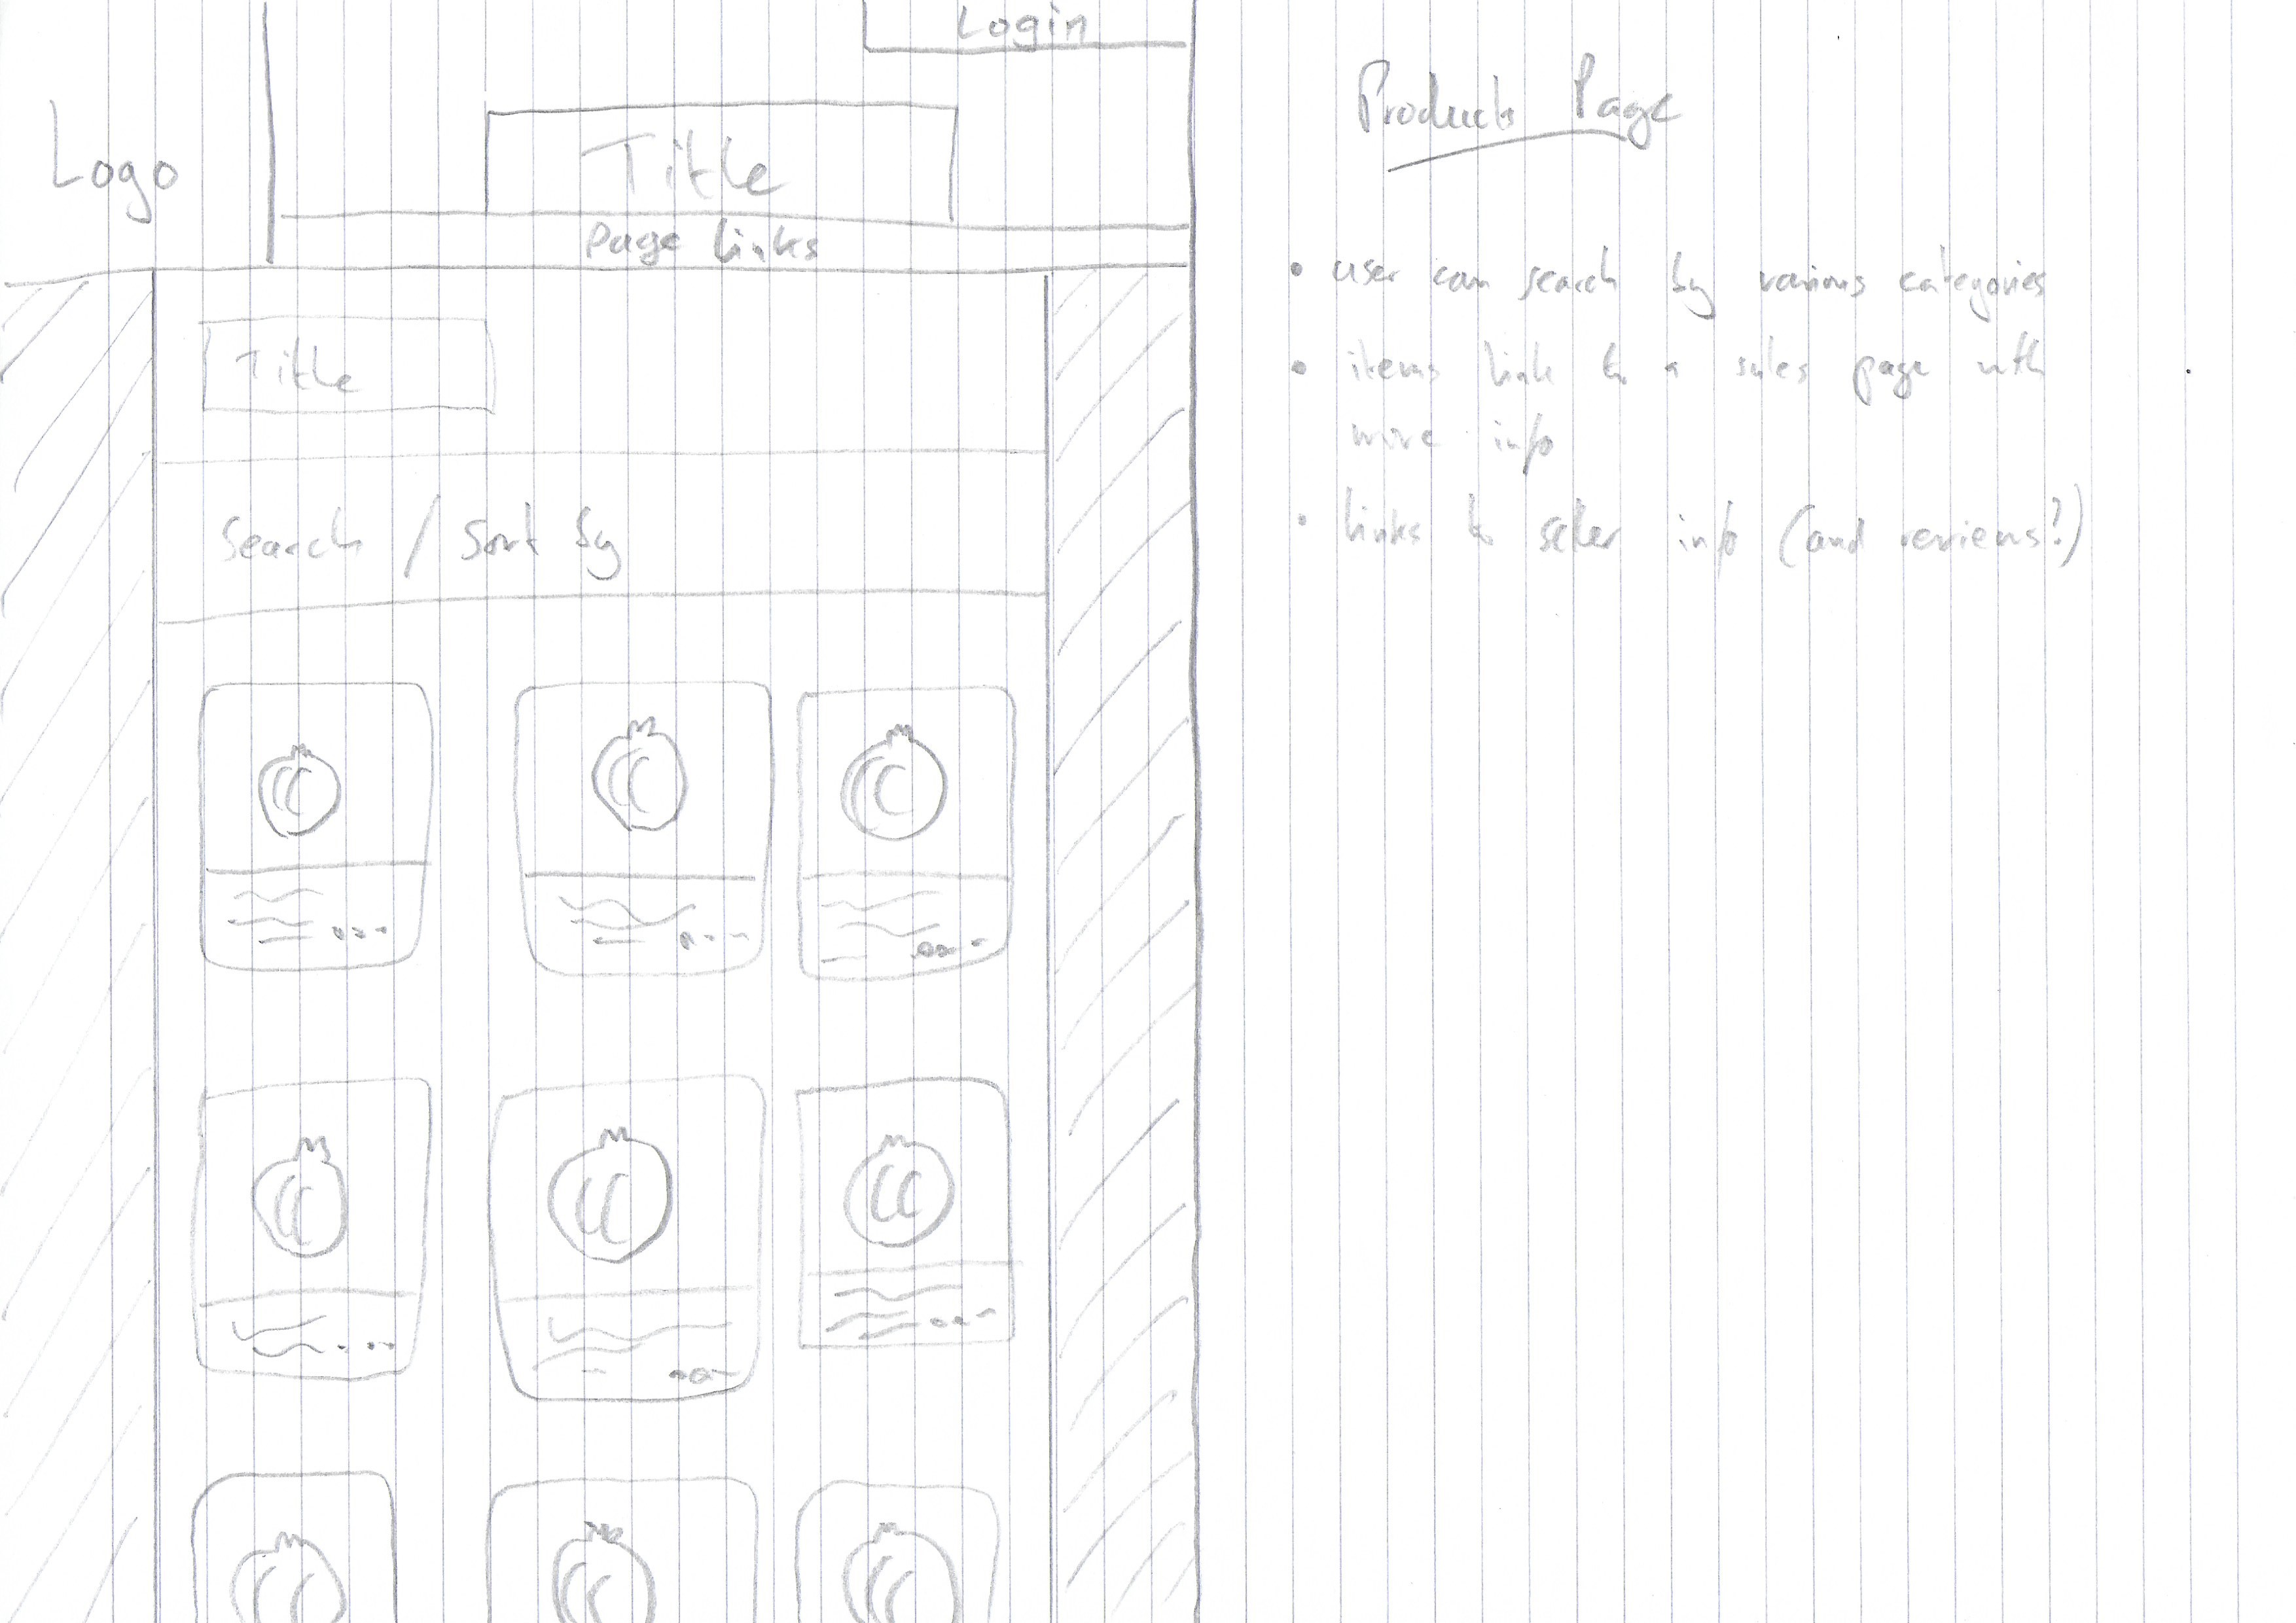 Login
Logo
Title
Page links
Title
Search / Sort by
Products Page
• user can search by various categories
• items link to a sales page with
more info
• links to seller info (and reviews?)